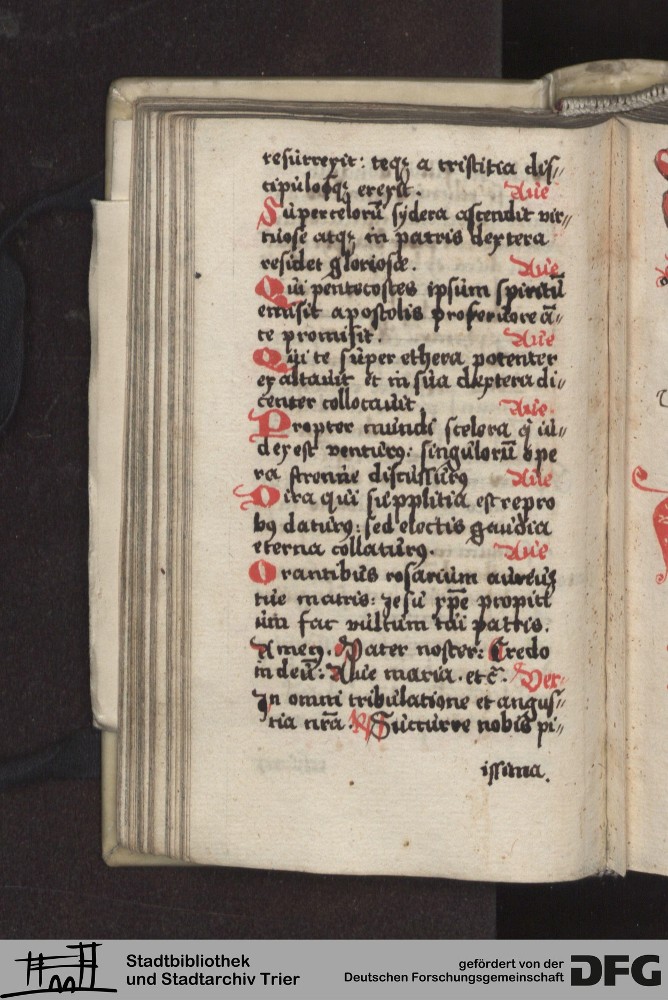 resurrexit: teq₃ a tristitia dis//
cipulosq₃ erexit. Aue
Supercelorū sydera ascendit vir//
tuose atq₃ in patris dextera
residet gloriose. Aue
Qui pentecostes ipsum spiritū
emisit apostolis proferuore ā//
te promisit. Aue
Qui te super ethera potenter
exaltauit et in sua dextera di//
center collocauit. Aue.
Propter mundi scelera q̄ iu//
dex est venturꝰ: singulorū ope
ra strenue discussurꝰ Aue
Dira qui supplitia est repro
bꝰ daturꝰ: sed electis gaudia
eterna collaturꝰ. Aue
Orantibus rosarium aureū
tue matris: Jesu xp̄e propici
um fac vultum tui patris.
Amen. Pater noster: Credo
in deū: Aue maria. etc̄. Ver:
In omni tribulatione et angus//
tia nr̄a. R Succurre nobis pi//
issima.
Stadtbibliothek
und Stadtarchiv Trier
gefördert von der
Deutschen Forschungsgemeinschaft
DFG